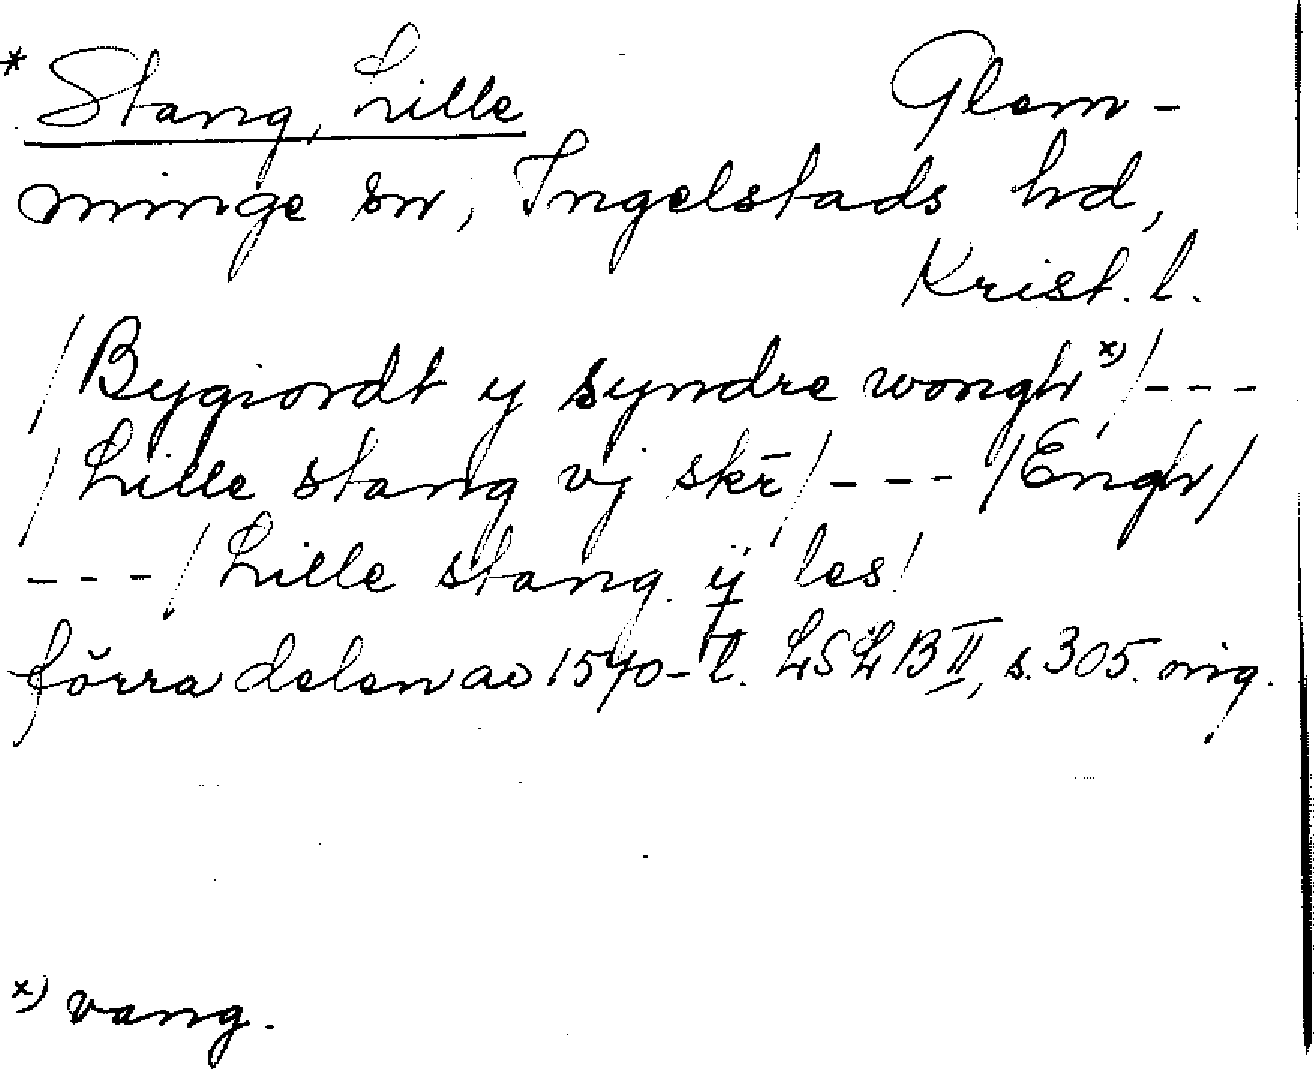 * Stang, Lille Glem-
minge sn, Ingelstads hd,
Krist. l.
/Bygiordt y syndre wongh x)/---
/Lille stang vj skr̄/--- /Engh/
---/Lille stang ij les/
förra delen av 1540-t. LSLB II, s. 305. orig.
x) vang.